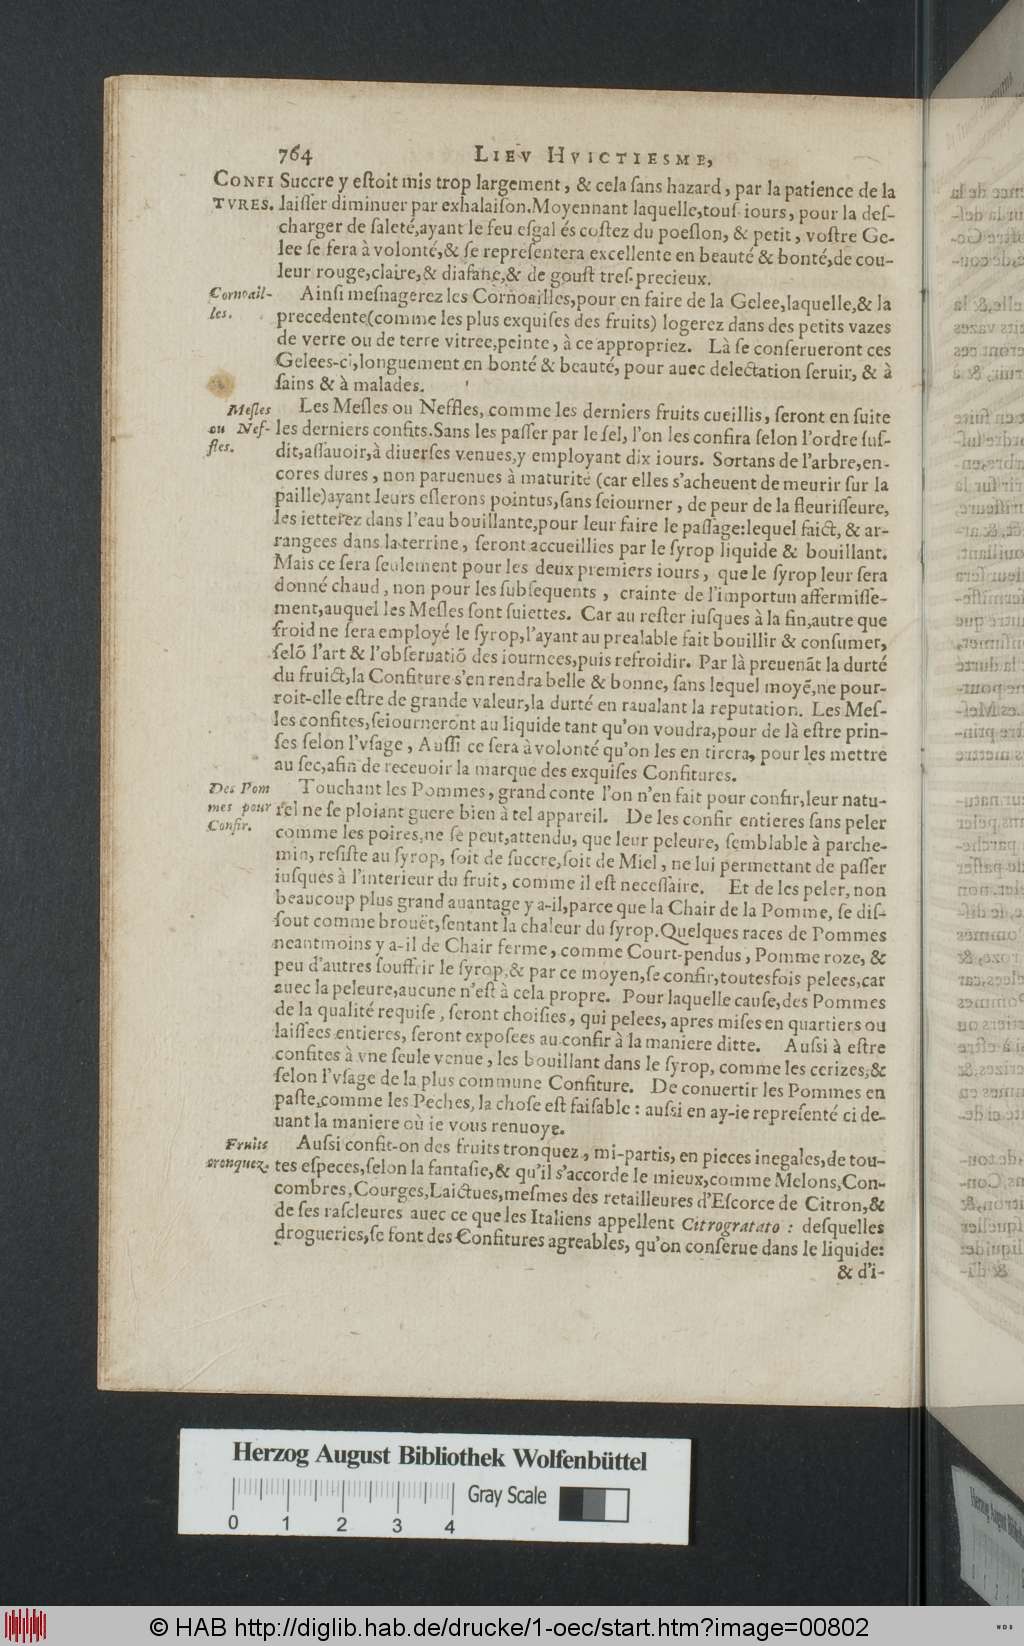 764 LIEV HVICTIESME,
CONFI Succre y eſtoit mis trop largement, & cela ſans hazard, par la patience de la
TVRES. laiſſer diminuer par exhalaiſon. Moyennant laquelle, touſ-iours, pour la deſ-
charger de ſaleté, ayant le feu eſgal és coſtez du poeſlon, & petit, voſtre Ge-
lee ſe fera à volonté, & ſe repreſentera excellente en beauté & bonté, de cou-
leur rouge, claire, & diafane, & de gouſt treſ-precieux.
Cornoail- Ainſi meſnagerez les Cornoailles, pour en faire de la Gelee, laquelle, & la
les. precedente (comme les plus exquiſes des fruits) logerez dans des petits vazes
de verre ou de terre vitree, peinte, à ce appropriez. Là ſe conſerueront ces
Gelees-ci, longuement en bonté & beauté, pour auec delectation ſeruir, & à
ſains & à malades.
Meſles Les Meſles ou Neffles, comme les derniers fruits cueillis, ſeront en ſuite
ou Nef- les derniers confits. Sans les paſſer par le ſel, l'on les confira ſelon l'ordre ſuſ-
fles. dit, aſſauoir, à diuerſes venues, y employant dix iours. Sortans de l'arbre, en-
cores dures, non paruenues à maturité (car elles s'acheuent de meurir ſur la
paille) ayant leurs eſlerons pointus, ſans ſeiourner, de peur de la fleuriſſeure,
les ietterez dans l'eau bouillante, pour leur faire le paſſage: lequel faict, & ar-
rangees dans la terrine, ſeront accueillies par le ſyrop liquide & bouillant.
Mais ce ſera ſeulement pour les deux premiers iours, que le ſyrop leur ſera
donné chaud, non pour les ſubſequents, crainte de l'importun affermiſſe-
ment, auquel les Meſles ſont ſuiettes. Car au reſter iuſques à la fin, autre que
froid ne ſera employé le ſyrop, l'ayant au prealable fait bouillir & conſumer,
ſelõ l'art & l'obſeruatiõ des iournees, puis refroidir. Par là preuenãt la durté
du fruict, la Confiture s'en rendra belle & bonne, ſans lequel moyẽ, ne pour-
roit-elle eſtre de grande valeur, la durté en raualant la reputation. Les Meſ-
les confites, ſeiourneront au liquide tant qu'on voudra, pour de là eſtre prin-
ſes ſelon l'vſage, Auſſi ce ſera à volonté qu'on les en tirera, pour les mettre
au ſec, afin de receuoir la marque des exquiſes Confitures.
Des Pom Touchant les Pommes, grand conte l'on n'en fait pour confir, leur natu-
mes pour rel ne ſe ploiant guere bien à tel appareil. De les confir entieres ſans peler
Confir. comme les poires, ne ſe peut, attendu, que leur peleure, ſemblable à parche-
min, reſiſte au ſyrop, ſoit de ſuccre, ſoit de Miel, ne lui permettant de paſſer
iuſques à l'interieur du fruit, comme il eſt neceſſaire. Et de les peler, non
beaucoup plus grand auantage y a-il, parce que la Chair de la Pomme, ſe diſ-
ſout comme brouët, ſentant la chaleur du ſyrop. Quelques races de Pommes
neantmoins y a-il de Chair ferme, comme Court-pendus, Pomme roze, &
peu d'autres ſouffrir le ſyrop, & par ce moyen, ſe confir, toutesfois pelees, car
auec la peleure, aucune n'eſt à cela propre. Pour laquelle cauſe, des Pommes
de la qualité requiſe, ſeront choiſies, qui pelees, apres miſes en quartiers ou
laiſſees entieres, ſeront expoſees au confir à la maniere ditte. Auſsi à eſtre
confites à vne ſeule venue, les bouillant dans le ſyrop, comme les cerizes, &
ſelon l'vſage de la plus commune Confiture. De conuertir les Pommes en
paſte, comme les Peches, la choſe eſt faiſable: auſsi en ay-ie repreſenté ci de-
uant la maniere où ie vous renuoye.
Fruits Auſsi confit-on des fruits tronquez, mi-partis, en pieces inegales, de tou-
tronquez. tes eſpeces, ſelon la fantaſie, & qu'il s'accorde le mieux, comme Melons, Con-
combres, Courges, Laictues, meſmes des retailleures d'Eſcorce de Citron, &
de ſes raſcleures auec ce que les Italiens appellent Citrogratato: deſquelles
drogueries, ſe font des Confitures agreables, qu'on conſerue dans le liquide:
& d'i-
Herzog August Bibliothek Wolfenbüttel
Gray Scale
0 1 2 3 4
© HAB http://diglib.hab.de/drucke/1-oec/start.htm?image=00802